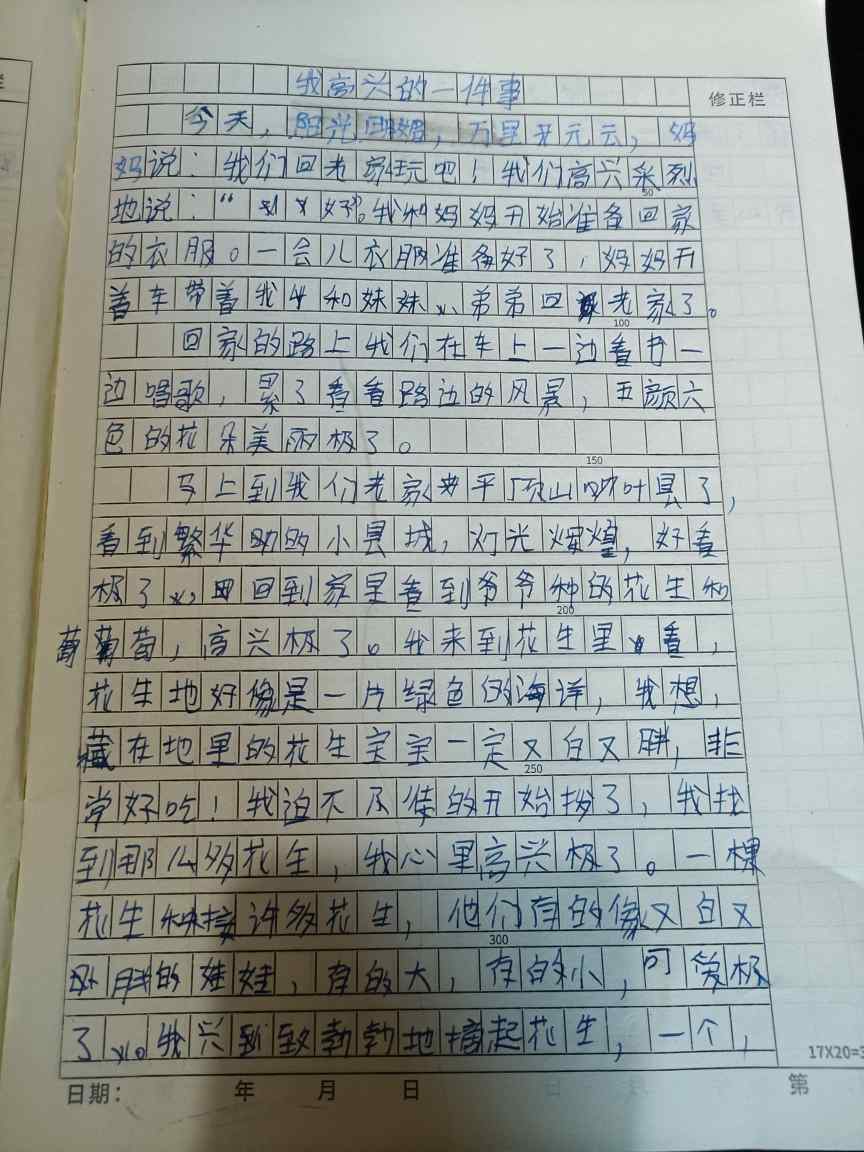 我高兴的一件事
修正栏
今天，阳光明媚，万里无云，妈
妈说：我们回老家玩吧！我们高兴采烈
50
地说："好"。我和妈妈开始准备回家
的衣服。一会儿衣服准备好了，妈妈开
着车带着我和妹妹、弟弟回老家了。
100
回家的路上我们在车上一边看书一
边唱歌，累了看看路边的风景，五颜六
色的花朵美丽极了。
150
马上到我们老家平顶山叶县了，
看到繁华的小县城，灯光辉煌，好看
极了，回到家里看到爷爷种的花生和
200
葡萄，高兴极了。我来到花生里看，
花生地好像是一片绿色的海洋，我想，
藏在地里的花生宝宝一定又白又胖，非
250
常好吃！我迫不及待的开始拨了，我找
到那么多花生，我心里高兴极了。一棵
花生接许多花生，他们有的像又白又
300
胖的娃娃，有的大，有的小，可爱极
了。我兴致勃勃地摘起花生，一个，
17X20=3
日期： 年 月 日 第